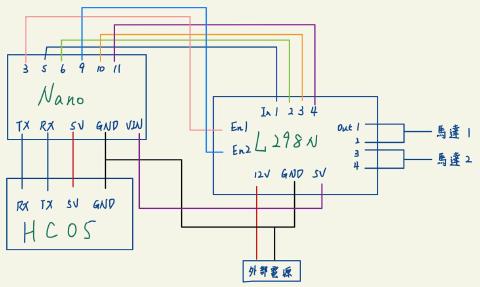 3 5 6 9 10 11
Nano
TX RX 5V GND VIN
RX TX 5V GND
HC05
In 1 2 3 4
En1
En2
L298N
Out 1
2
3
4
12V GND 5V
馬達 1
馬達 2
外部電源